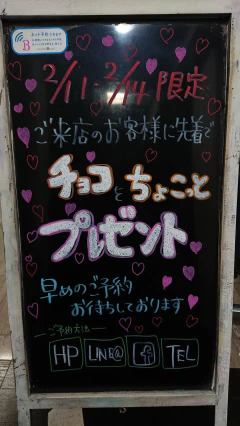 2/11~2/14限定
ご来店のお客様に先着で
チョコとちょこっと
プレゼント
早めのご予約
お待ちしております
ーご予約方法ー
HP LINE@ f TEL